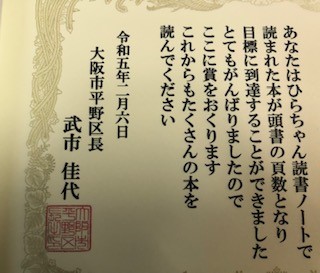 あなたはひらちゃん読書ノートで
読まれた本が頭書の頁数となり
目標に到達することができました
とてもがんばりましたので
ここに賞をおくります
これからもたくさんの本を
読んでください
令和五年二月六日
大阪市平野区長
武市 佳代